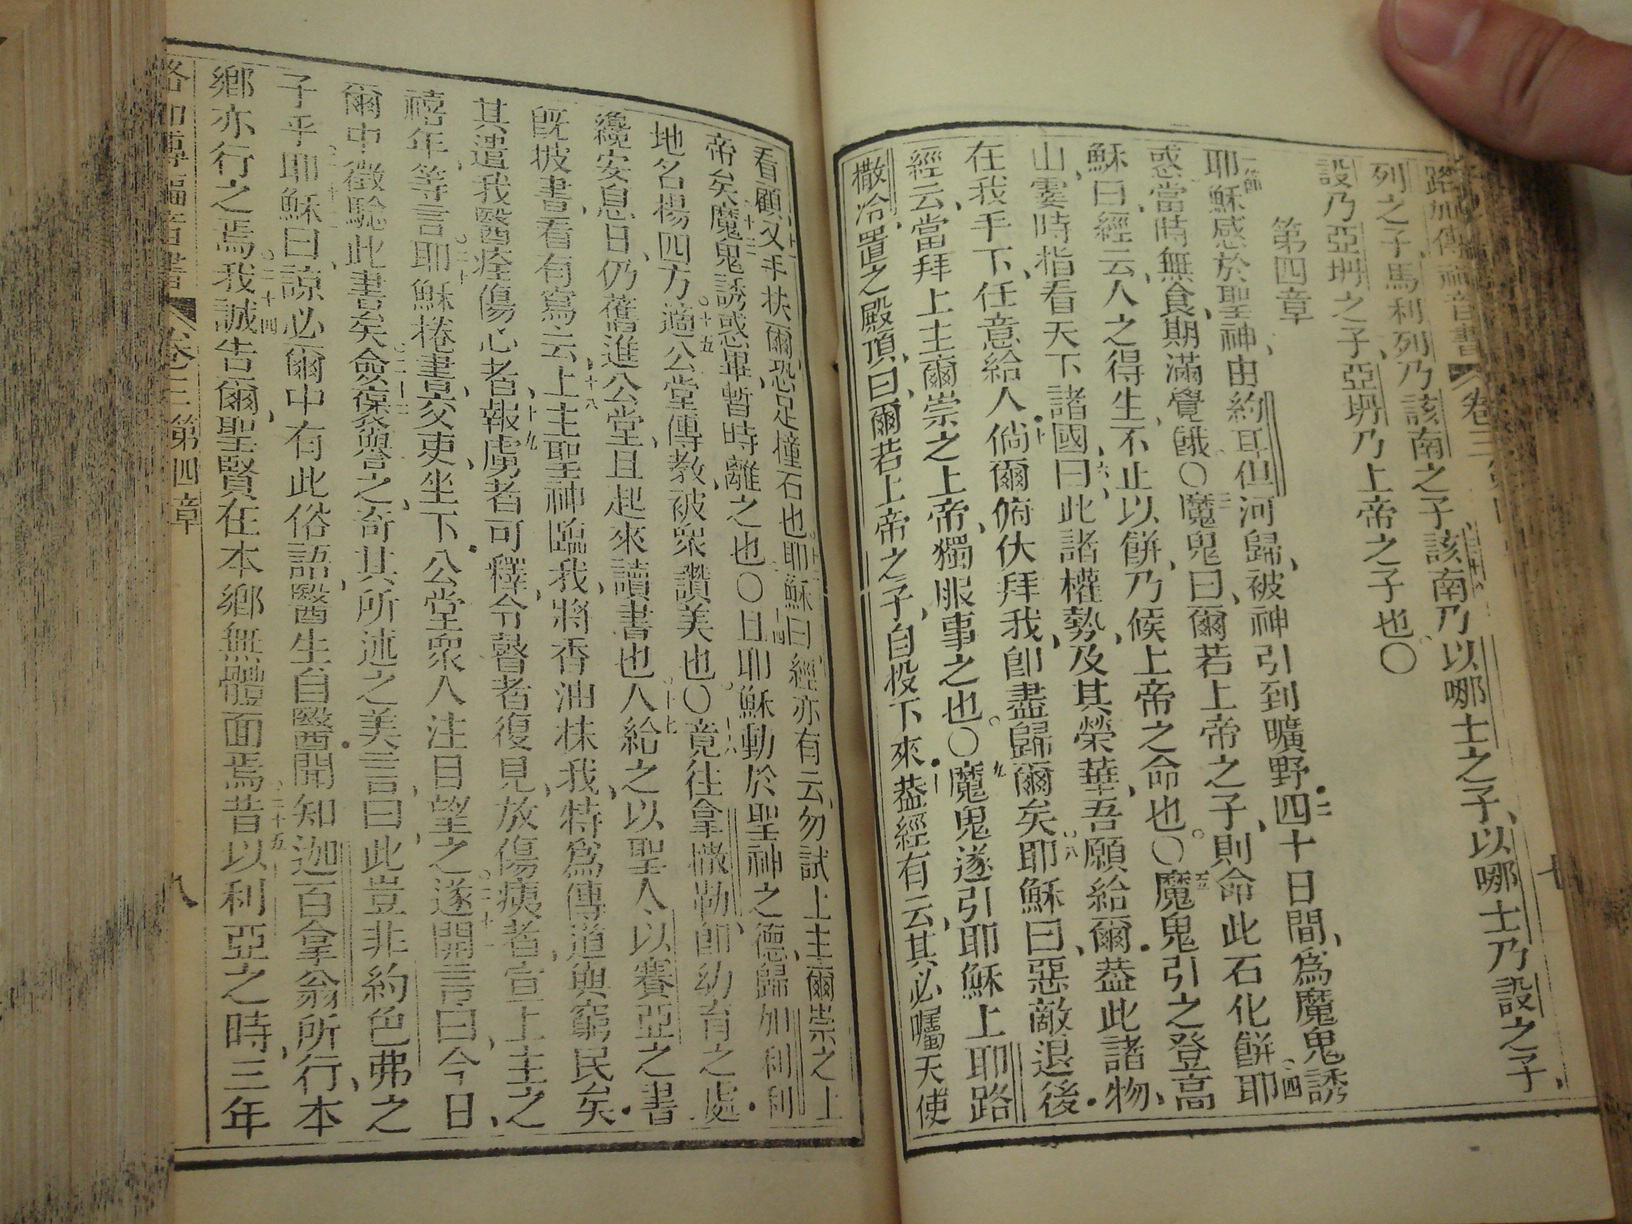 路加傳福音書 卷三
以哪士之子、以哪士乃設之子、
列之子、馬利列乃該南之子、該南乃
設乃亞坍之子、亞坍乃上帝之子也○
第四章
一節 耶穌感於聖神、由約耳但河歸、被神引到曠野、二 四十日間、為魔鬼誘
惑、當時無食、期滿覺餓○三 魔鬼曰、爾若上帝之子、則命此石化餅、四 耶
穌曰、經云、人之得生、不止以餅、乃候上帝之命也○五 魔鬼引之登高
山、霎時指看天下諸國、六 曰、此諸權勢、及其榮華、吾願給爾、蓋此諸物、
在我手下、任意給人、七 倘爾俯伏拜我、即盡歸爾矣、八 耶穌曰、惡敵退後、
經云、當拜上主爾崇之上帝、獨服事之也○九 魔鬼遂引耶穌上耶路
撒冷、置之殿頂、曰、爾若上帝之子、自投下來、十 蓋經有云、其必囑天使
看顧、十一 以手扶爾、恐足撞石也、十二 耶穌曰、經亦有云、勿試上主爾崇之上
帝矣、十三 魔鬼誘惑畢、暫時離之也○十四 且耶穌動於聖神之德、歸加利利、
地名揚四方、十五 適公堂傳教、被眾讚美也○十六 竟往拿撒勒、即幼育之處、
纔安息日、仍舊進公堂、且起來讀書也、十七 人給之以聖人以賽亞之書、
既披書、看有寫云、十八 上主聖神臨我、將香油抹我、特為傳道與窮民矣、
其遣我醫痊傷心者、十九 報虜者可釋、令瞽者復見、放傷痍者、宣上主之
禧年等言、二十 耶穌捲書、交吏坐下、公堂眾人注目望之、二十一 遂開言曰、今日、
爾中徵騐此書矣、二十二 僉葆譽之、奇其所述之美言、曰、此豈非約色弗之
子乎、二十三 耶穌曰、諒必爾中有此俗語、醫生自醫、聞知迦百拿翁所行、本
鄉亦行之焉、二十四 我誠告爾、聖賢在本鄉無體面焉、二十五 昔以利亞之時、三年
卷三 第四章 八